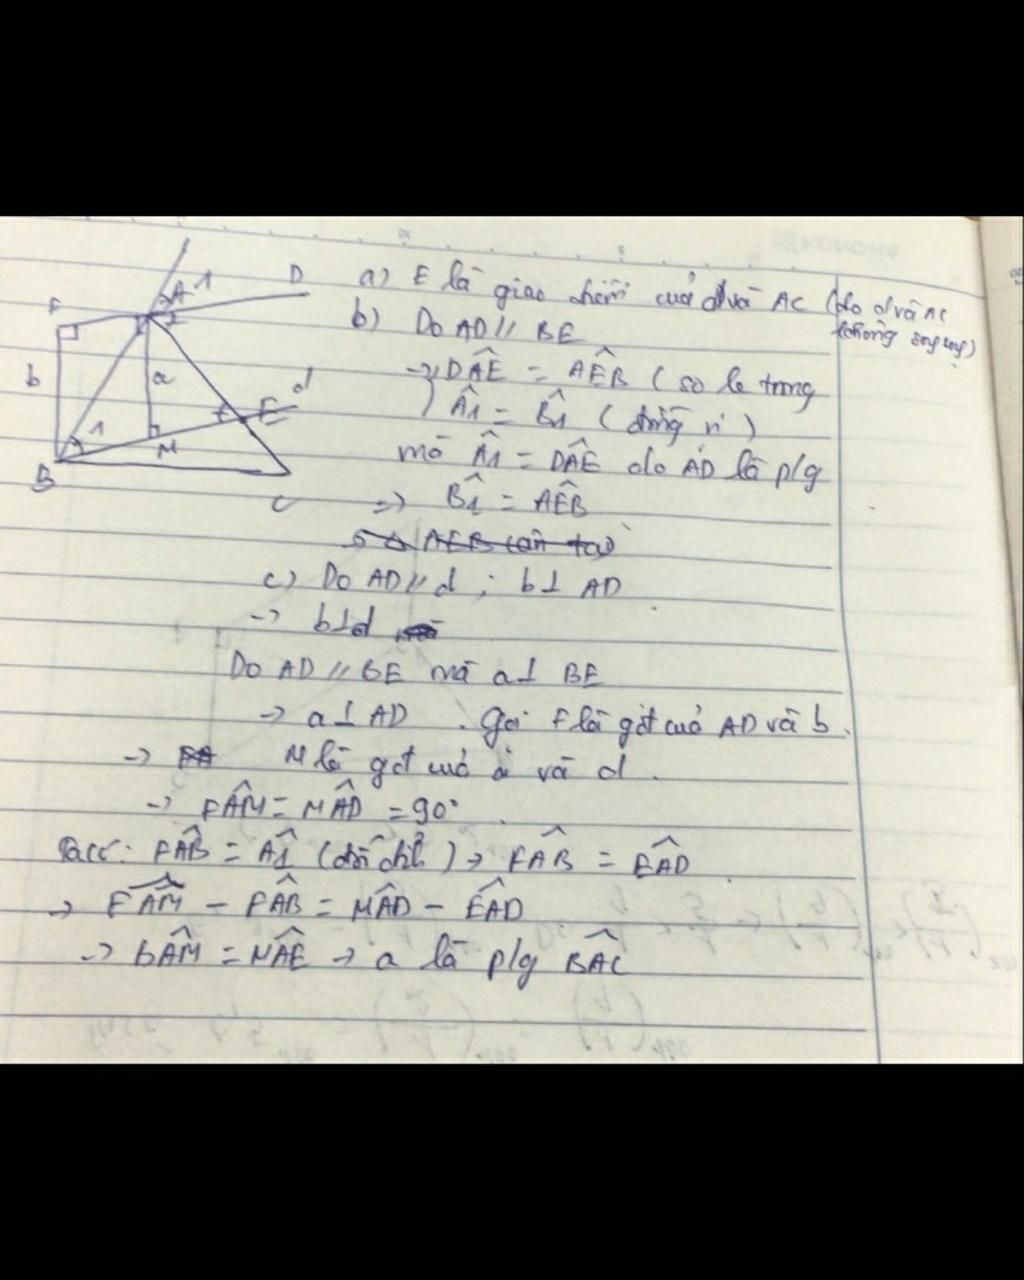 F
A 1
2
D
b
a
d
1
E
M
B
C
a) E là giao điểm của d và AC (do d và AC
không song song)
b) Do AD // BE
→ DÂE = AÊB (so le trong
Â1 = B̂1 (đồng vị)
mà Â1 = DÂE do AD là p/g
=> B̂1 = AÊB
AEB cân tại
c) Do AD // d ; b ⊥ AD
→ b ⊥ d
Do AD // BE mà a ⊥ BE
→ a ⊥ AD . Gọi F là gđ của AD và b.
→ M là gđ của a và d.
→ FÂM = MÂD = 90°
Ta có: FÂB = Â1 (đối đỉnh) → FÂB = EÂD
→ FÂM - FÂB = MÂD - EÂD
→ BÂM = MÂE → a là p/g BÂC